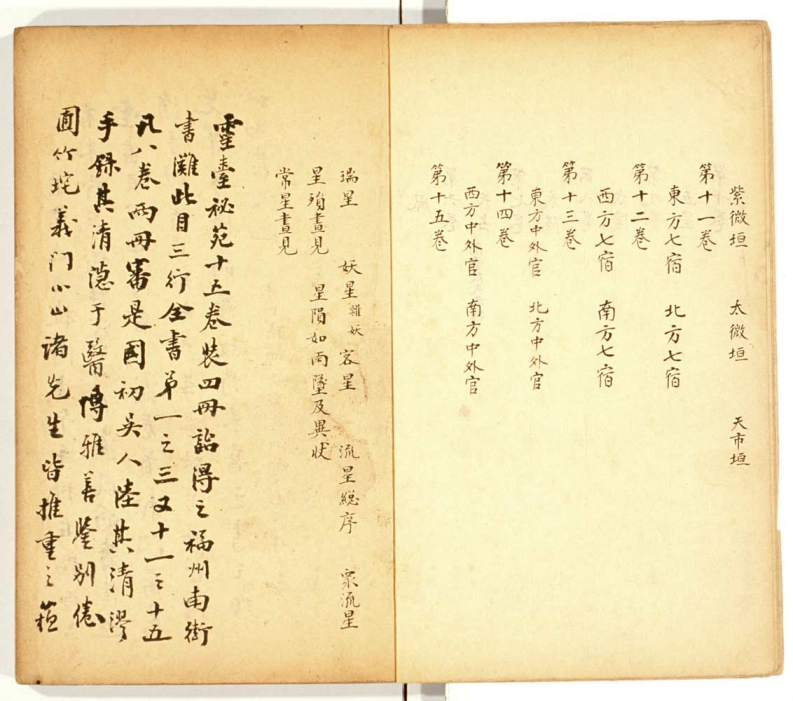 紫微垣　太微垣　天市垣
第十一卷
東方七宿　北方七宿
第十二卷
西方七宿　南方七宿
第十三卷
東方中外官　北方中外官
第十四卷
西方中外官　南方中外官
第十五卷
瑞星　妖星雜妖　客星　流星總序　眾流星
星殞晝見　星隕如雨墜及異狀
常星晝見
靈臺祕苑十五卷裝四冊詒得之福州南街
書灘此目三行全書第一之三又十一之十五
凡八卷兩冊審是國初吳人陸其清漻
手錄其清隱于醫博雅善鑒別倦
圃竹垞義門小山諸先生皆推重之